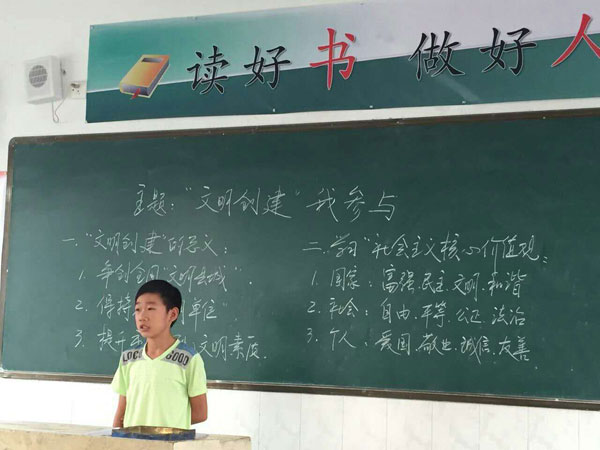 读好书 做好人
主题:“文明创建”我参与
一.“文明创建”的意义:
1. 争创全国“文明县城”.
2. 保持 单位”
3. 提升 文明素质.
二.学习“社会主义核心价值观:
1. 国家:富强.民主.文明.和谐
2. 社会:自由.平等.公正.法治
3. 个人:爱国.敬业.诚信.友善
GOOD